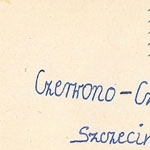 Czerwono-Cz
Szczecin